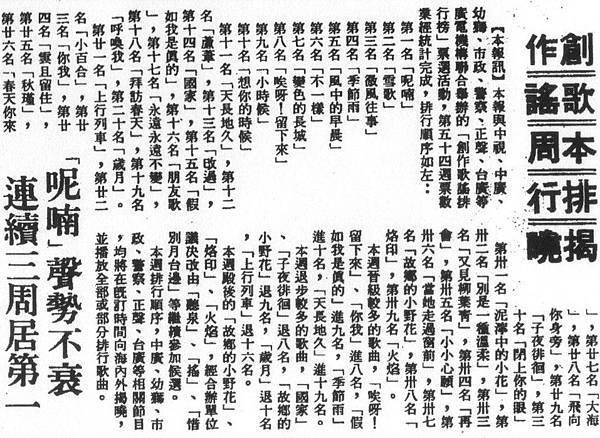 創作
歌謠
本周
排行
揭曉
「呢喃」聲勢不衰
連續三周居第一
【本報訊】本報與中視、中廣、
幼獅、市政、警察、正聲、台廣等
廣電機構聯合舉辦的「創作歌謠排
行榜」票選活動,第五十四週票數
業經統計完成,排行順序如左:
第一名「呢喃」
第二名「雪歌」
第三名「微風往事」
第四名「季節雨」
第五名「風中的早晨」
第六名「不一樣」
第七名「變色的長城」
第八名「唉呀!留下來」
第九名「小時候」
第十名「想你的時候」
第十一名「天長地久」,第十二
名「蘆葦」,第十三名「改過」,
第十四名「國家」,第十五名「假
如我是真的」,第十六名「朋友歌
」,第十七名「永遠永遠不變」,
第十八名「拜訪春天」,第十九名
「呼喚我」,第二十名「歲月」。
第廿一名「上行列車」,第廿二
名「小百合」,第廿
三名「你我」,第廿
四名「雲且留住」,
第廿五名「秋瑾」,
第廿六名「春天你來
」,第廿七名「大海
」,第廿八名「飛向
你身旁」,第廿九名
「子夜徘徊」,第三
十名「閉上你的眼」
第卅一名「泥濘中的小花」,第
卅二名「別是一種溫柔」,第卅三
名「又見柳葉青」,第卅四名「再
會」,第卅五名「小小心願」,第
卅六名「當她走過窗前」,第卅七
名「故鄉的小野花」,第卅八名「
烙印」,第卅九名「火焰」。
本週晉級較多的歌曲,「唉呀!
留下來」、「你我」進八名,「假
如我是真的」進九名,「季節雨」
進十名,「天長地久」進十九名。
本週退步較多的歌曲,「國家」
、「子夜徘徊」退八名,「故鄉的
小野花」退九名,「歲月」退十名
,「上行列車」退十六名。
本週殿後的「故鄉的小野花」、
「烙印」、「火焰」,經合辦單位
議決改由「聽泉」、「搖」、「惜
別月台邊」等繼續參加候選。
本週排行順序,中廣、幼獅、市
政、警察、正聲、台廣等相關節目
,均將在既訂時間向海內外揭曉,
並播放全部或部分排行歌曲。